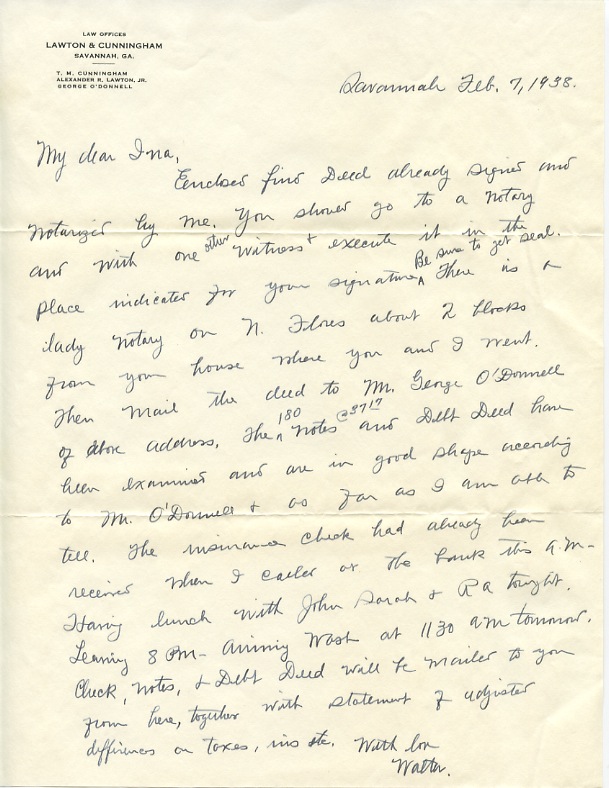 LAW OFFICES
LAWTON & CUNNINGHAM
SAVANNAH, GA.
T. M. CUNNINGHAM
ALEXANDER R. LAWTON, JR.
GEORGE O'DONNELL
Savannah Feb. 7, 1938.
My dear Ina,
Enclosed find Deed already signed and
notarized by me. You should go to a notary
and with one other witness & execute it in the
place indicated for your signature, Be sure to get seal. There is a
lady notary on N. Flores about 2 blocks
from your house where you and I went.
Then mail the deed to Mr. George O'Donnell
of above address. The 180 notes @ 37 17 and Debt Deed have
been examined and are in good shape according
to Mr. O'Donnell & as far as I am able to
tell. The insurance check had already been
received when I called at the bank this A.M-
Having lunch with John Sarah & R A tonight.
Leaving 8 PM - arriving Wash at 11 30 am tomorrow.
Check, notes, & Debt Deed will be mailed to you
from here, together with statement of adjusted
differences on taxes, ins etc. With love
Walter.